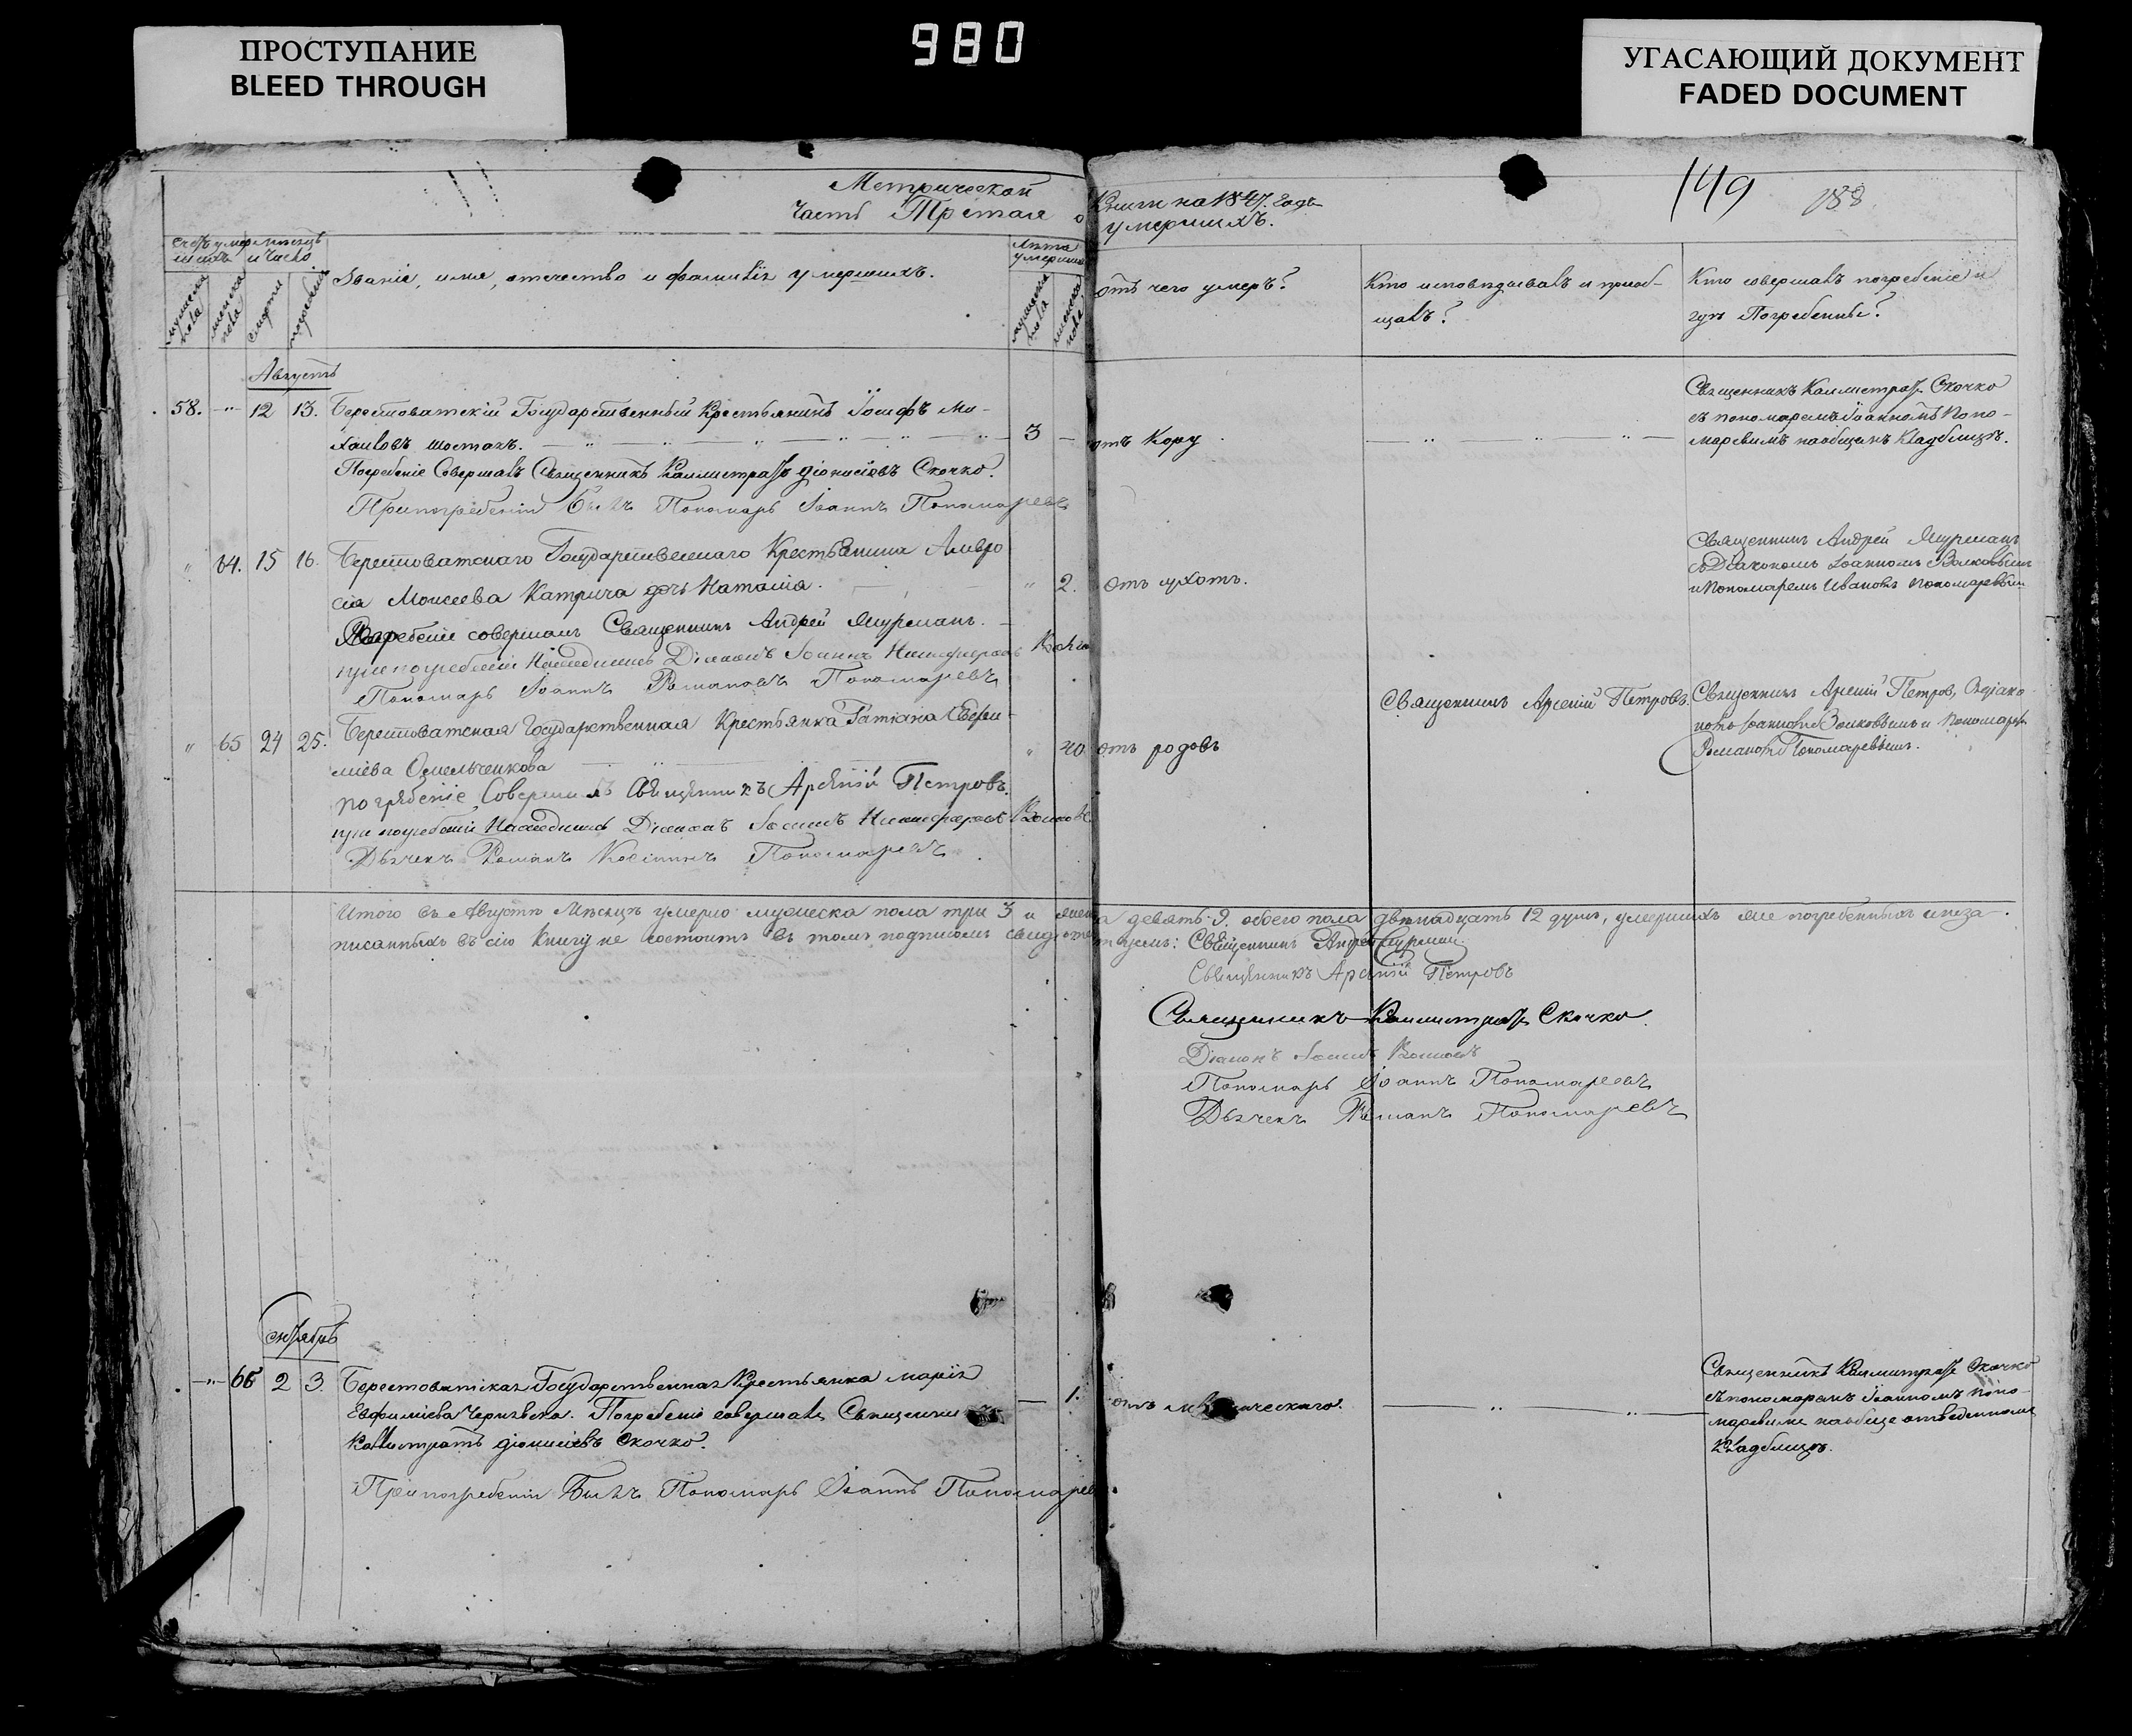 ПРОСТУПАНИЕ
BLEED THROUGH
980
УГАСАЮЩИЙ ДОКУМЕНТ
FADED DOCUMENT
149
188
Метрической Книги на 1847. Годъ
Часть Третая о умершихъ.
Счетъ умершихъ
мужеска пола
женска пола
Мѣсяцъ и число
смерти
погребенія
Званіе, имя, отечество и фамилія умершихъ.
Лѣта умершихъ
мужеска пола
женска пола
отъ чего умеръ?
Кто исповѣдовалъ и приоб-
щалъ?
Кто совершалъ погребеніе и
гдѣ Погребенны?
Августъ
58. -"- 12 13. Берестоватскій Государственный Крестьянинъ Іосифъ Ми-
хаиловъ шостакъ. 3 - отъ кору
Погребеніе Совершалъ Священникъ Каллистратъ Діонисіевъ Скочко.
Припогребеніи Былъ Пономарь Іоаннъ Пономаревъ
Священникъ Каллистратъ Скочко
съ пономаремъ Іоанномъ Поно-
маревимъ наобщемъ Кладбищѣ.
" 64. 15 16. Берестоватскаго Государственнаго Крестьянина Амвро
сія Моисеева Катрича дочь Наталія. " 2. отъ сухотъ.
Погребеніе совершалъ Священникъ Андрей Шурманъ.
при погребеніи Находились Діаконъ Іоаннъ Никифоровъ Волков
Пономарь Іоаннъ Романовъ Пономаревъ
Священникъ Андрей Шурманъ
съ Діакономъ Іоанномъ Волковымъ
и Пономаремъ Ивановъ Пономаревым
" 65 24 25. Берестоватская Государственная Крестьянка Татіана Ефи-
міева Омельченкова " 40 отъ родовъ
погребеніе Совершилъ Священникъ Арсеній Петровъ.
при погребеніи Находились Діаконъ Іоаннъ Никифоровъ Волковъ
Дьячекъ Романъ Пономаревъ
Священникъ Арсеній Петровъ.
Священникъ Арсеній Петров, Сдіако-
номъ Іоанномъ Волковымъ и Пономаремъ
Романомъ Пономаревымъ.
Итого въ Августѣ Мѣсяцѣ умерло мужеска пола три 3 и женска девять 9. обоего пола двенадцать 12 душъ, умершихъ же погребенныхъ и неза-
писанныхъ въ сію Книгу не состоитъ въ томъ подписомъ свидѣтельствуемъ: Священникъ Андрей Шурман
Священникъ Арсеній Петровъ
Священникъ Каллистратъ Скочко.
Діаконъ Іоаннъ Волковъ
Пономарь Іоаннъ Пономаревъ
Дьячекъ Романъ Пономаревъ
Сентябрь
-"- 66 2 3. Берестоватская Государственная Крестьянка марія
Евфиміева Чернявска. Погребеніе совершалъ Священникъ - 1.
Каллистратъ Діонисіевъ Скочко.
Припогребеніи Былъ Пономарь Іоаннъ Пономарев
Священникъ Каллистратъ Скочко
съ пономаремъ Іоанномъ поно-
маревимъ наобще отведенномъ
Кладбищѣ.